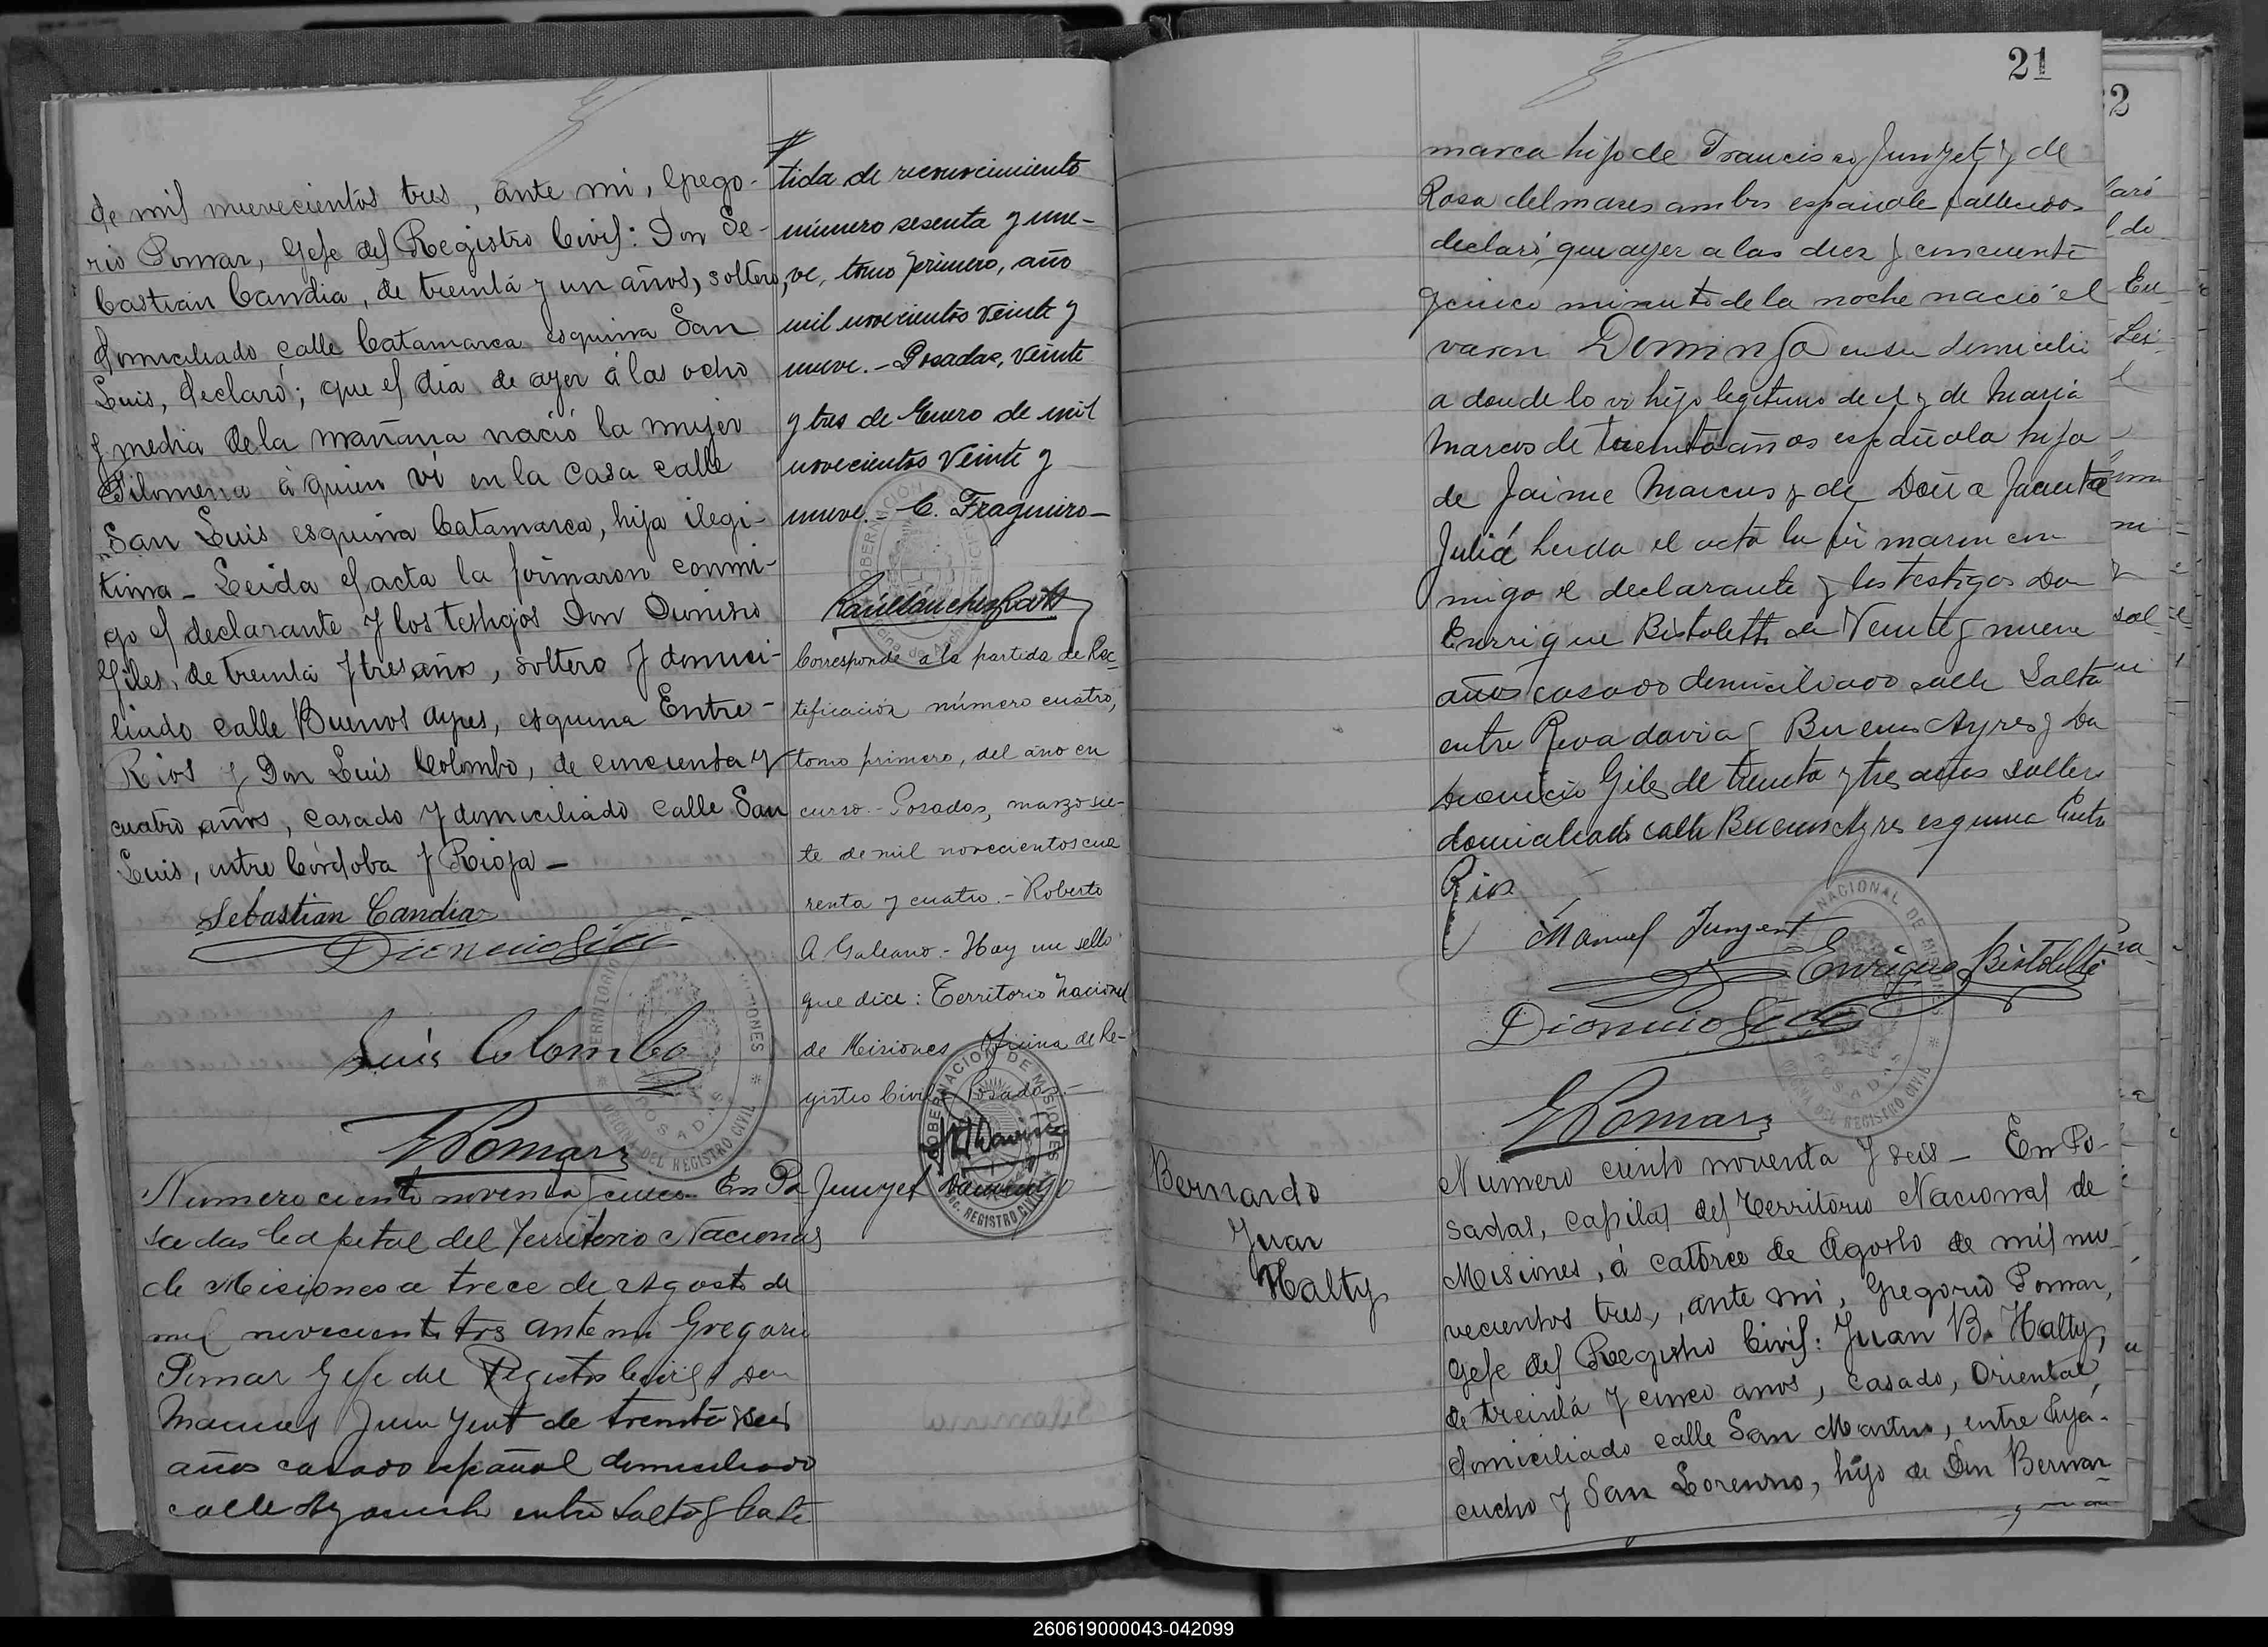 de mil nuevecientos tres, ante mi, Grego-
rio Pomar, Gefe del Registro Civil: Don Se-
bastian Candia, de treinta y un años, soltero,
domiciliado calle Catamarca esquina San
Luis, declaró; que el dia de ayer á las ocho
y media de la mañana nació la mujer
Filomena á quien ví en la casa calle
San Luis esquina Catamarca, hija ilegi-
tima - Leida el acta la firmaron conmi-
go el declarante y los testigos Don Dionisio
Giles, de treinta y tres años, soltero y domici-
liado calle Buenos Ayres, esquina Entre-
Rios y Don Luis Colombo, de cincuenta y
cuatro años, casado y domiciliado calle San
Luis, entre Córdoba y Rioja -
Sebastian Candia
Dionicio Giles
Luis Colombo
G Pomar
Numero ciento noventa y cinco. En Po
sadas Capital del Territorio Nacional
de Misiones a trece de Agosto de
mil novecientos tres ante mi Gregorio
Pomar Gefe del Registro Civil Don
Manuel Junyent de treinta y seis
años casado español domiciliado
calle Ayacucho entre Salta y Cata
tida de reconocimiento
número sesenta y nue-
ve, tomo primero, año
mil novecientos veinte y
nueve. - Posadas, veinte
y tres de Enero de mil
novecientos veinte y
nueve. - C. Fragueiro -
Corresponde a la partida de Rec
tificación número cuatro,
tomo primero, del año en
curso. - Posadas, marzo sie-
te de mil novecientos cua
renta y cuatro. - Roberto
A Galeano - Hay un sello
que dice: Territorio Nacional
de Misiones Oficina de Re-
gistro Civil Posadas. -
GOBERNACION DE MISIONES
REGISTRO CIVIL
Junyet Domingo
TERRITORIO MISIONES
OFICINA DEL REGISTRO CIVIL
POSADAS
21
marca hijo de Francisco Junyet y de
Rosa delmares ambos españole fallecidos
declaró que ayer a las diez y cincuenta
y cinco minuto de la noche nació el
varon Domingo en su domicilio
a donde lo vi hijo legitimo de el y de Maria
Marcos de treinta años española hija
de Jaime Marcus y de Doña Jacinta
Juliá leida el acta la firmaron con
migo el declarante y los testigos Don
Enrrique Bistoletti de Veinte y nueve
años casado domiciliado calle Salta
entre Rivadavia y Buenos Ayres y Don
Dionicio Giles de treinta y tre años soltero
domiciliado calle Buenos Ayres esquina Entre
Rios
Manuel Junyent
Enrique Bistoletti
Dionicio Giles
NACIONAL DE MISIONES
OFICINA DEL REGISTRO CIVIL
POSADAS
G Pomar
Bernardo
Juan
Halty
Número ciento noventa y seis - En Po-
sadas, capital del Territorio Nacional de
Misiones, á catorce de Agosto de mil nue
vecientos tres, ante mi, Gregorio Pomar,
Gefe del Registro Civil: Juan B. Halty,
de treinta y cinco años, casado, Oriental,
domiciliado calle San Martin, entre Aya-
cucho y San Lorenzo, hijo de Don Bernar
260619000043-042099